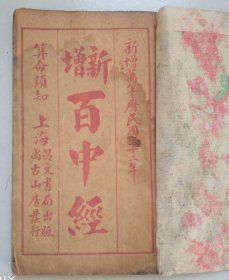 新增萬年历民國二十三年
新增
百中經
算命須知
上海昌文書局出版
尚古山房發行